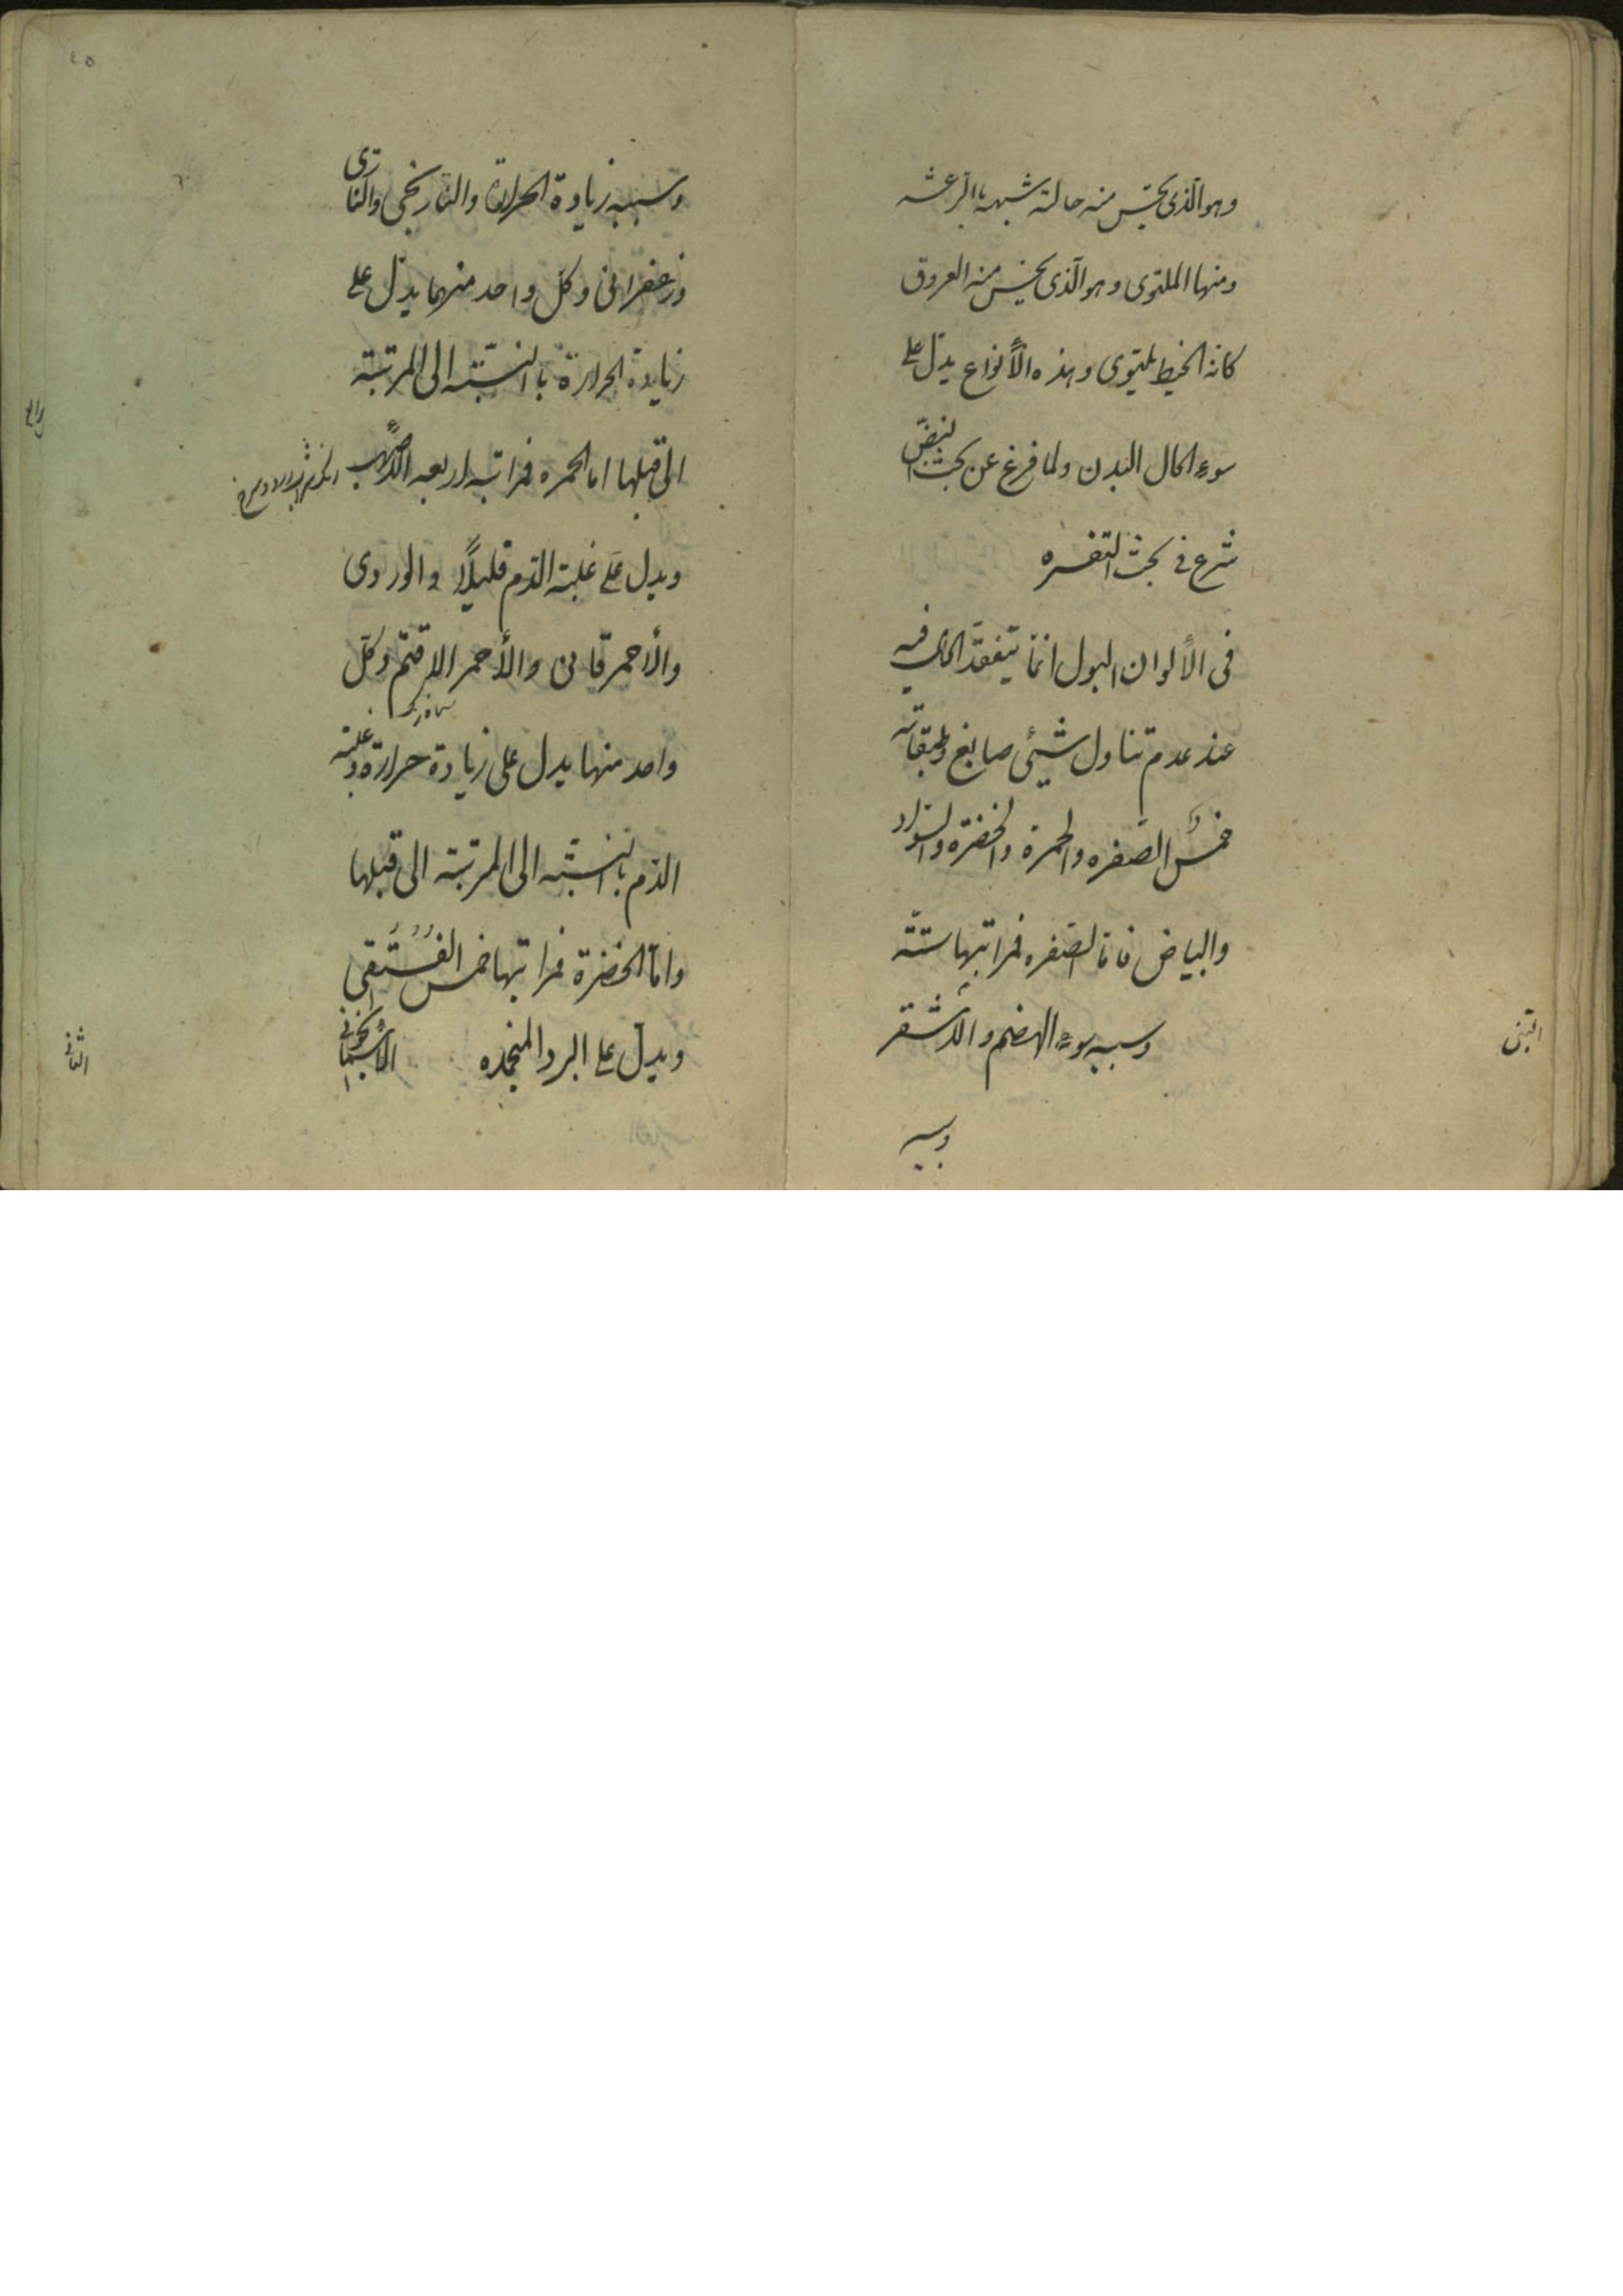 وهو الذی یحس منه حالة شبیهة بالرعشه
ومنها الملتوی وهو الذی یحس منه العروق
کانه الخیط یلتوی وهذه الأنواع یدل علی
سوء الحال البدن ولما فرغ عن بحث النبض
شرع فی بحث التفسره
فی الألوان البول انما یتفقد الحال فیه
عند عدم تناول شیئی صابغ وطبقاته
خمس الصفره والحمرة والخضرة والسواد
والبیاض فاما الصفره فمراتبها ستة
التبنی
وسببه سوء الهضم والأشقر
وسببه
٤٥
وسببه زیادة الحرارة والنارنجی والناری
وزعفرانی وکل واحد منهما یدل علی
زیادة الحرارة بالنسبته الی المرتبة
التی قبلها اما الحمره فمراتبه اربعه الأصهب
ویدل علی غلبة الدم قلیلاً والوردی
والأحمر قانی والأحمر الاقتم وکل
واحد منها یدل علی زیادة حرارة وغلبة
الدم بالنسبته الی المرتبة التی قبلها
واما الخضرة فمراتبها خمس الفستقی
ویدل علی البرد المنجمده الأسمانجونی
الثانی